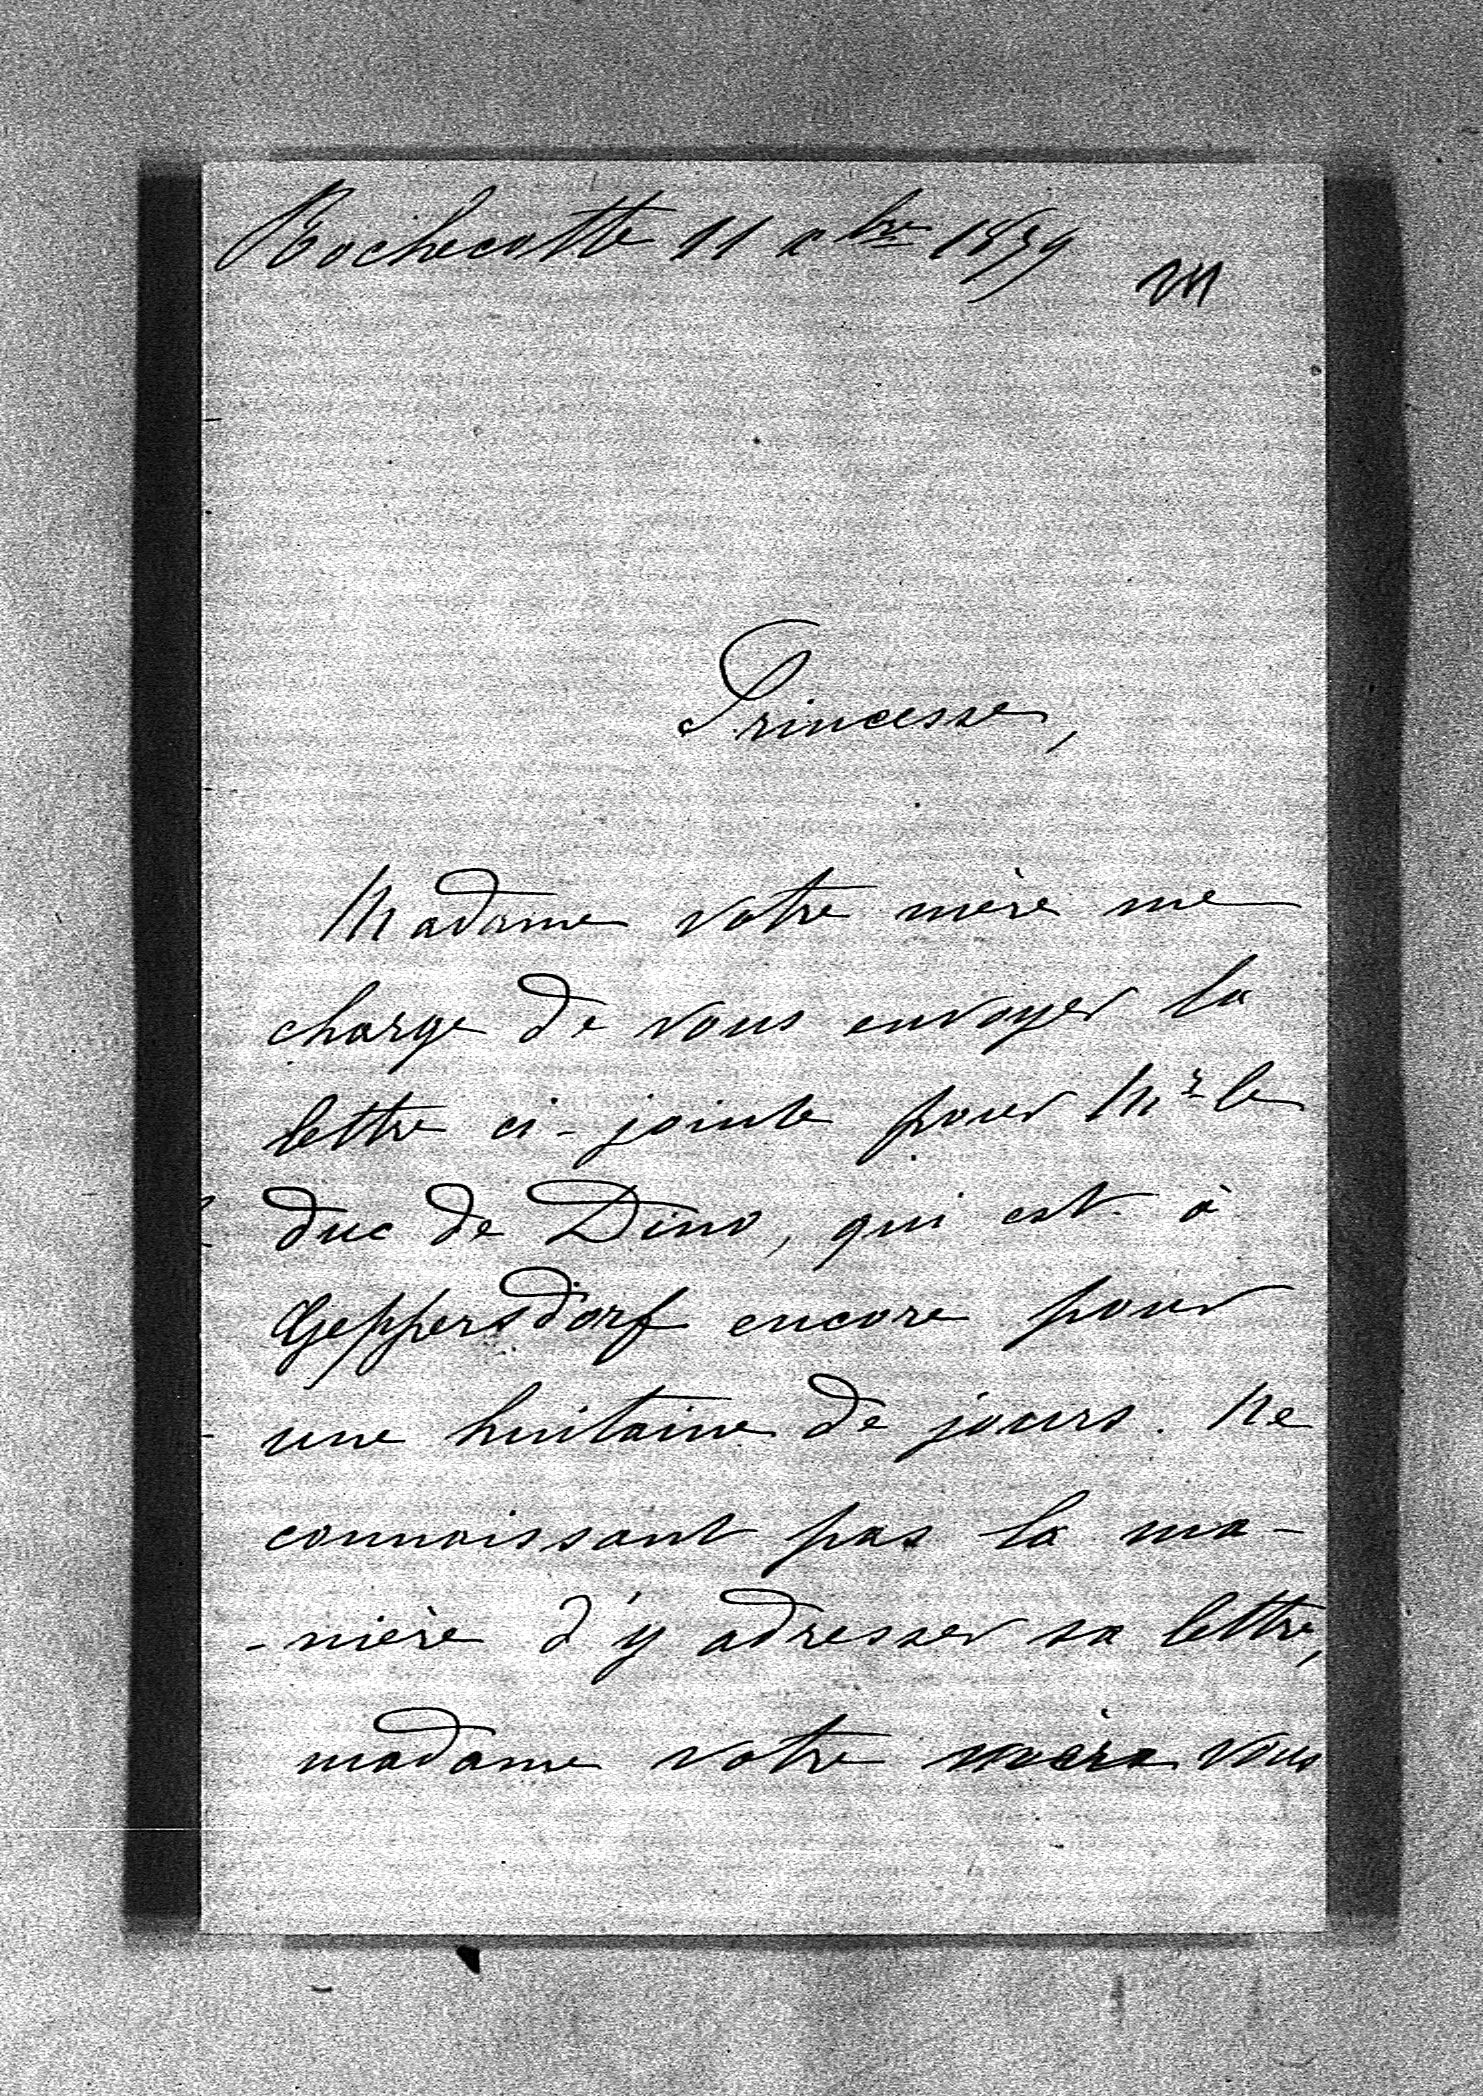 Rochecotte 11 xbre 1859
Princesse,
Madame votre mère me
charge de vous envoyer la
lettre ci-jointe pour Mr le
duc de Dino, qui est à
Geppersdorf encore pour
une huitaine de jours. Ne
connaissant pas la ma-
-nière d'y adresser sa lettre,
madame votre mère vous